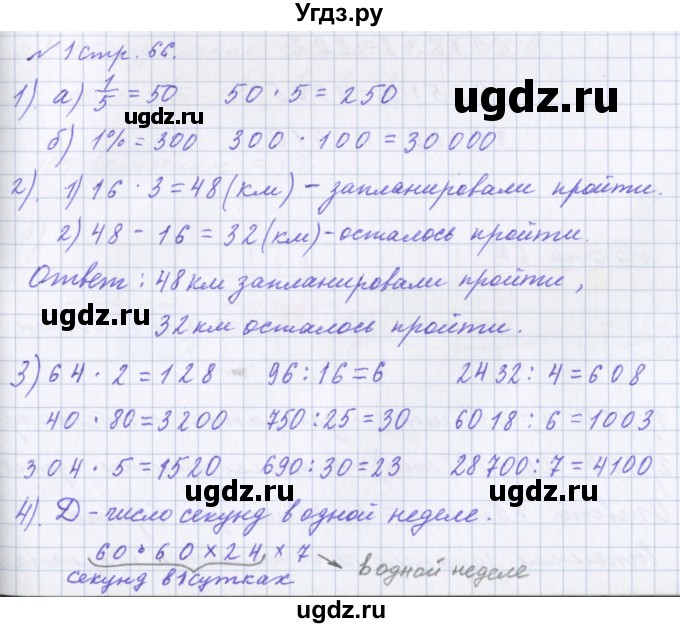 Угдз.ру
№ 1 стр. 66.
1). а) 1/5 = 50 50 · 5 = 250
ugdz.ru
б) 1% = 300 300 · 100 = 30 000
2). 1) 16 · 3 = 48 (км) - запланировали пройти.
2) 48 - 16 = 32 (км) - осталось пройти.
Ответ: 48 км запланировали пройти,
ugdz.ru
32 км осталось пройти.
3) 64 · 2 = 128 96 : 16 = 6 2432 : 4 = 608
40 · 80 = 3200 750 : 25 = 30 6018 : 6 = 1003
304 · 5 = 1520 690 : 30 = 23 28700 : 7 = 4100
ugdz.ru ugdz.ru
4). Д - число секунд в одной неделе.
60 · 60 × 24 × 7
секунд в 1 сутках в одной неделе
ugdz.ru